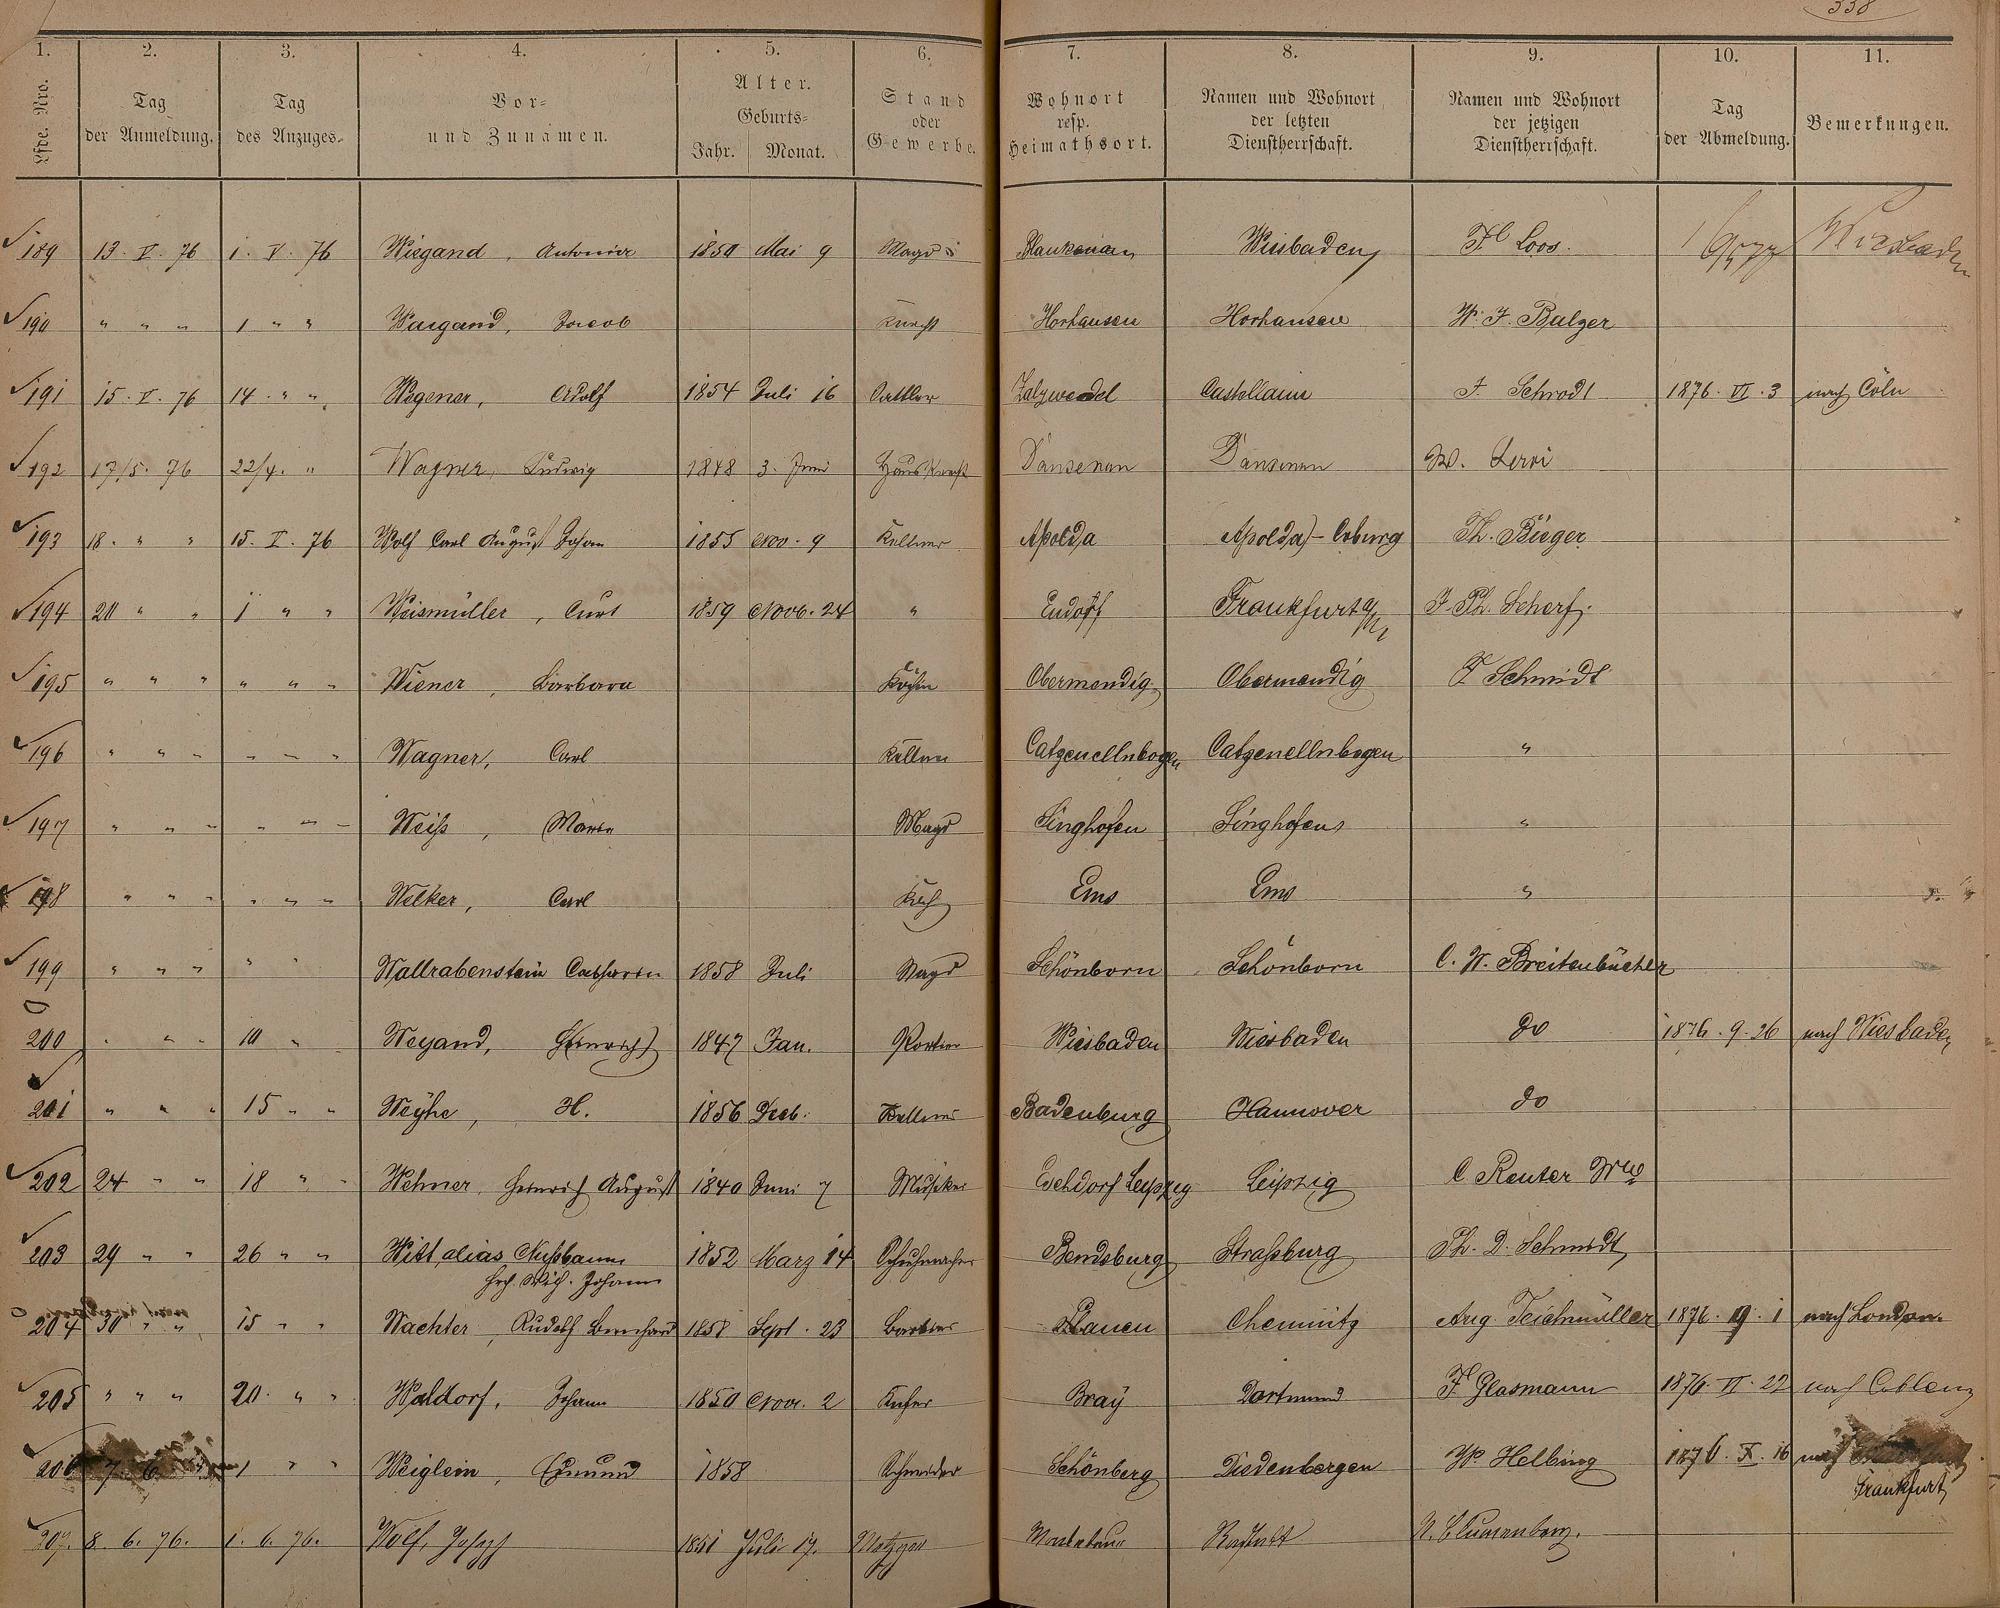 338
1. 2. 3. 4. 5. 6. 7. 8. 9. 10. 11.
Lfde. Nro. | Tag der Anmeldung. | Tag des Anzuges. | Vor- und Zunamen. | Alter. Geburts- Jahr. Monat. | Stand oder Gewerbe. | Wohnort resp. Heimathsort. | Namen und Wohnort der letzten Dienstherrschaft. | Namen und Wohnort der jetzigen Dienstherrschaft. | Tag der Abmeldung. | Bemerkungen.
189 13. V. 76 1. V. 76 Wiegand, Antonie 1850 Mai 9 Magd Wiesbaden Fr. Loos. Wiesbaden
190 " " " 1 " " Weigand, Jacob Knecht Horhausen Horhausen W. F. Balzer
191 15. V. 76 14. " " Wegener, Adolf 1854 Juli 16 Sattler Salzwedel Castellaun F. Schrodt 1876. VI. 3 nach Cöln
192 17/5. 76 22/4. " Wagner, Ludwig 1848 3. Juni Hausknecht Dausenau Dausenau W.
193 18. " " 15. V. 76 Wolf Carl August Johann 1855 Nov. 9 Kellner Apolda Apolda - Coburg Th. Bieger
194 20 " " 1 " " Weismüller, Curt 1859 Novb. 24 " Eudorf Frankfurt a/M J. Ph. Scherf
195 " " " " " " Wiener, Barbara Köchin Obermendig Obermendig F Schmidt
196 " " " " " " Wagner, Carl Kellner Catzenellnbogen Catzenellnbogen "
197 " " " " " " Weiß, Maria Magd Singhofen Singhofen "
198 " " " " " " Welker, Carl Koch Ems Ems "
199 " " " " " Wallrabenstein Catharin 1858 Juli Magd Schönborn Schönborn C. W. Breitenbücher
200 " " " 10 " Weyand, Heinrich 1847 Jan. Portier Wiesbaden Wiesbaden do 1876. 9. 26 nach Wiesbaden
201 " " " 15 " " Weyhe, H. 1856 Decb. Kellner Badenburg Hannover do
202 24 " " 18 " " Wehner, Heinrich August 1840 Juni 7 Musiker Eschdorf Leipzig Leipzig C Reuter Wwe
203 29 " " 26 " " Witt alias Nußbaum 1852 März 14 Schuhmacher Rendsburg Straßburg Ph. D. Schmidt
Hch. Wilh. Johann
204 30 " " 15 " " Wachter, Rudolf Bernhard 1858 Sept. 23 Barbier Plauen Chemnitz Aug Teichmüller 1876. 9. 1 nach London
205 " " " 20. " " Waldorf, Johann 1850 Nov. 2 Küfer Bray Dortmund Fr Glasmann 1876. VI. 22 nach Coblenz
206 7. 6. 1 " " Weiglein, Edmund 1858 Schneider Schönberg Diedenbergen W. Helbing 1876. X. 16 nach
Frankfurt
207. 8. 6. 76. 1. 6. 76. Wolf, Joseph 1851 Juli 17. Metzger Montabaur Rastatt N. Blumenberg.